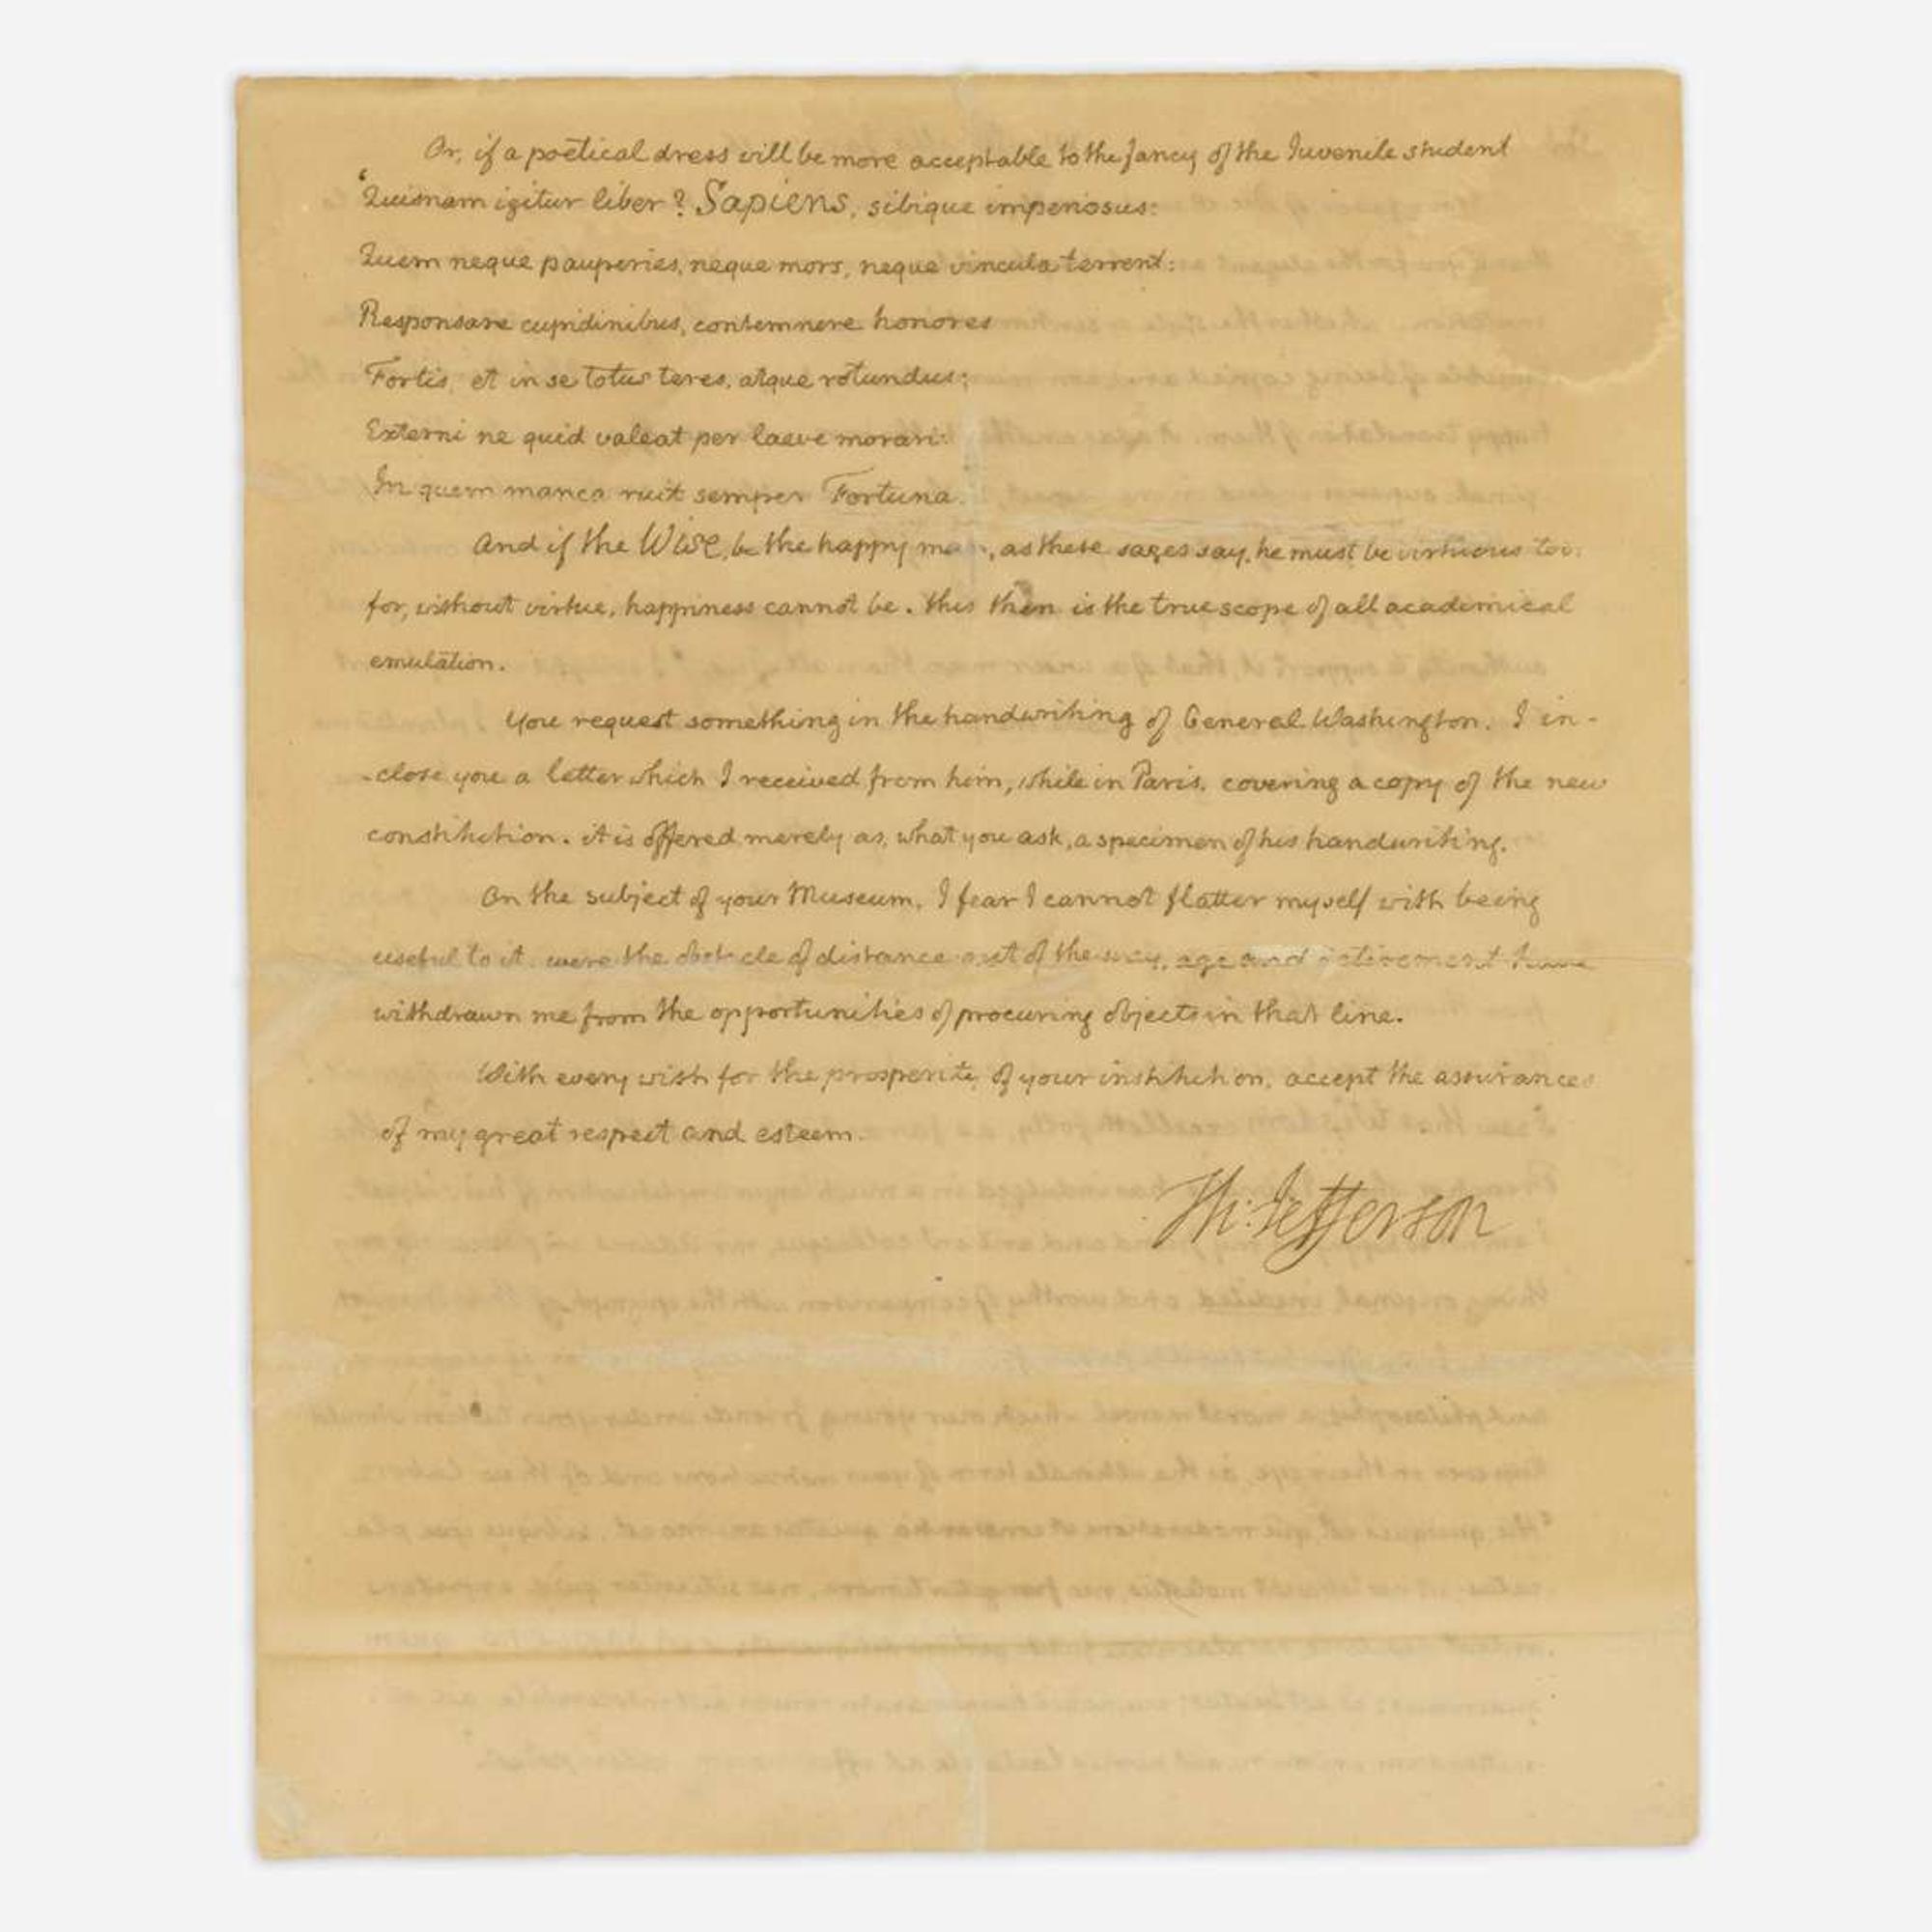 Or, if a poetical dress will be more acceptable to the fancy of the Juvenile student
'Quisnam igitur liber? Sapiens, sibique imperiosus:
Quem neque pauperies, neque mors, neque vincula terrent:
Responsare cupidinibus, contemnere honores
Fortis, et in se totus teres, atque rotundus;
Externi ne quid valeat per laeve morari:
In quem manca ruit semper Fortuna.
And if the Wise, be the happy man, as these sages say, he must be virtuous too:
for, without virtue, happiness cannot be. this then is the true scope of all academical
emulation.
You request something in the handwriting of General Washington. I in-
-close you a letter which I received from him, while in Paris, covering a copy of the new
constitution. it is offered merely as, what you ask, a specimen of his handwriting.
On the subject of your Museum, I fear I cannot flatter myself with being
useful to it. were the obstacle of distance out of the way, age and retirement have
withdrawn me from the opportunities of procuring objects in that line.
With every wish for the prosperity of your institution, accept the assurances
of my great respect and esteem.
Th: Jefferson